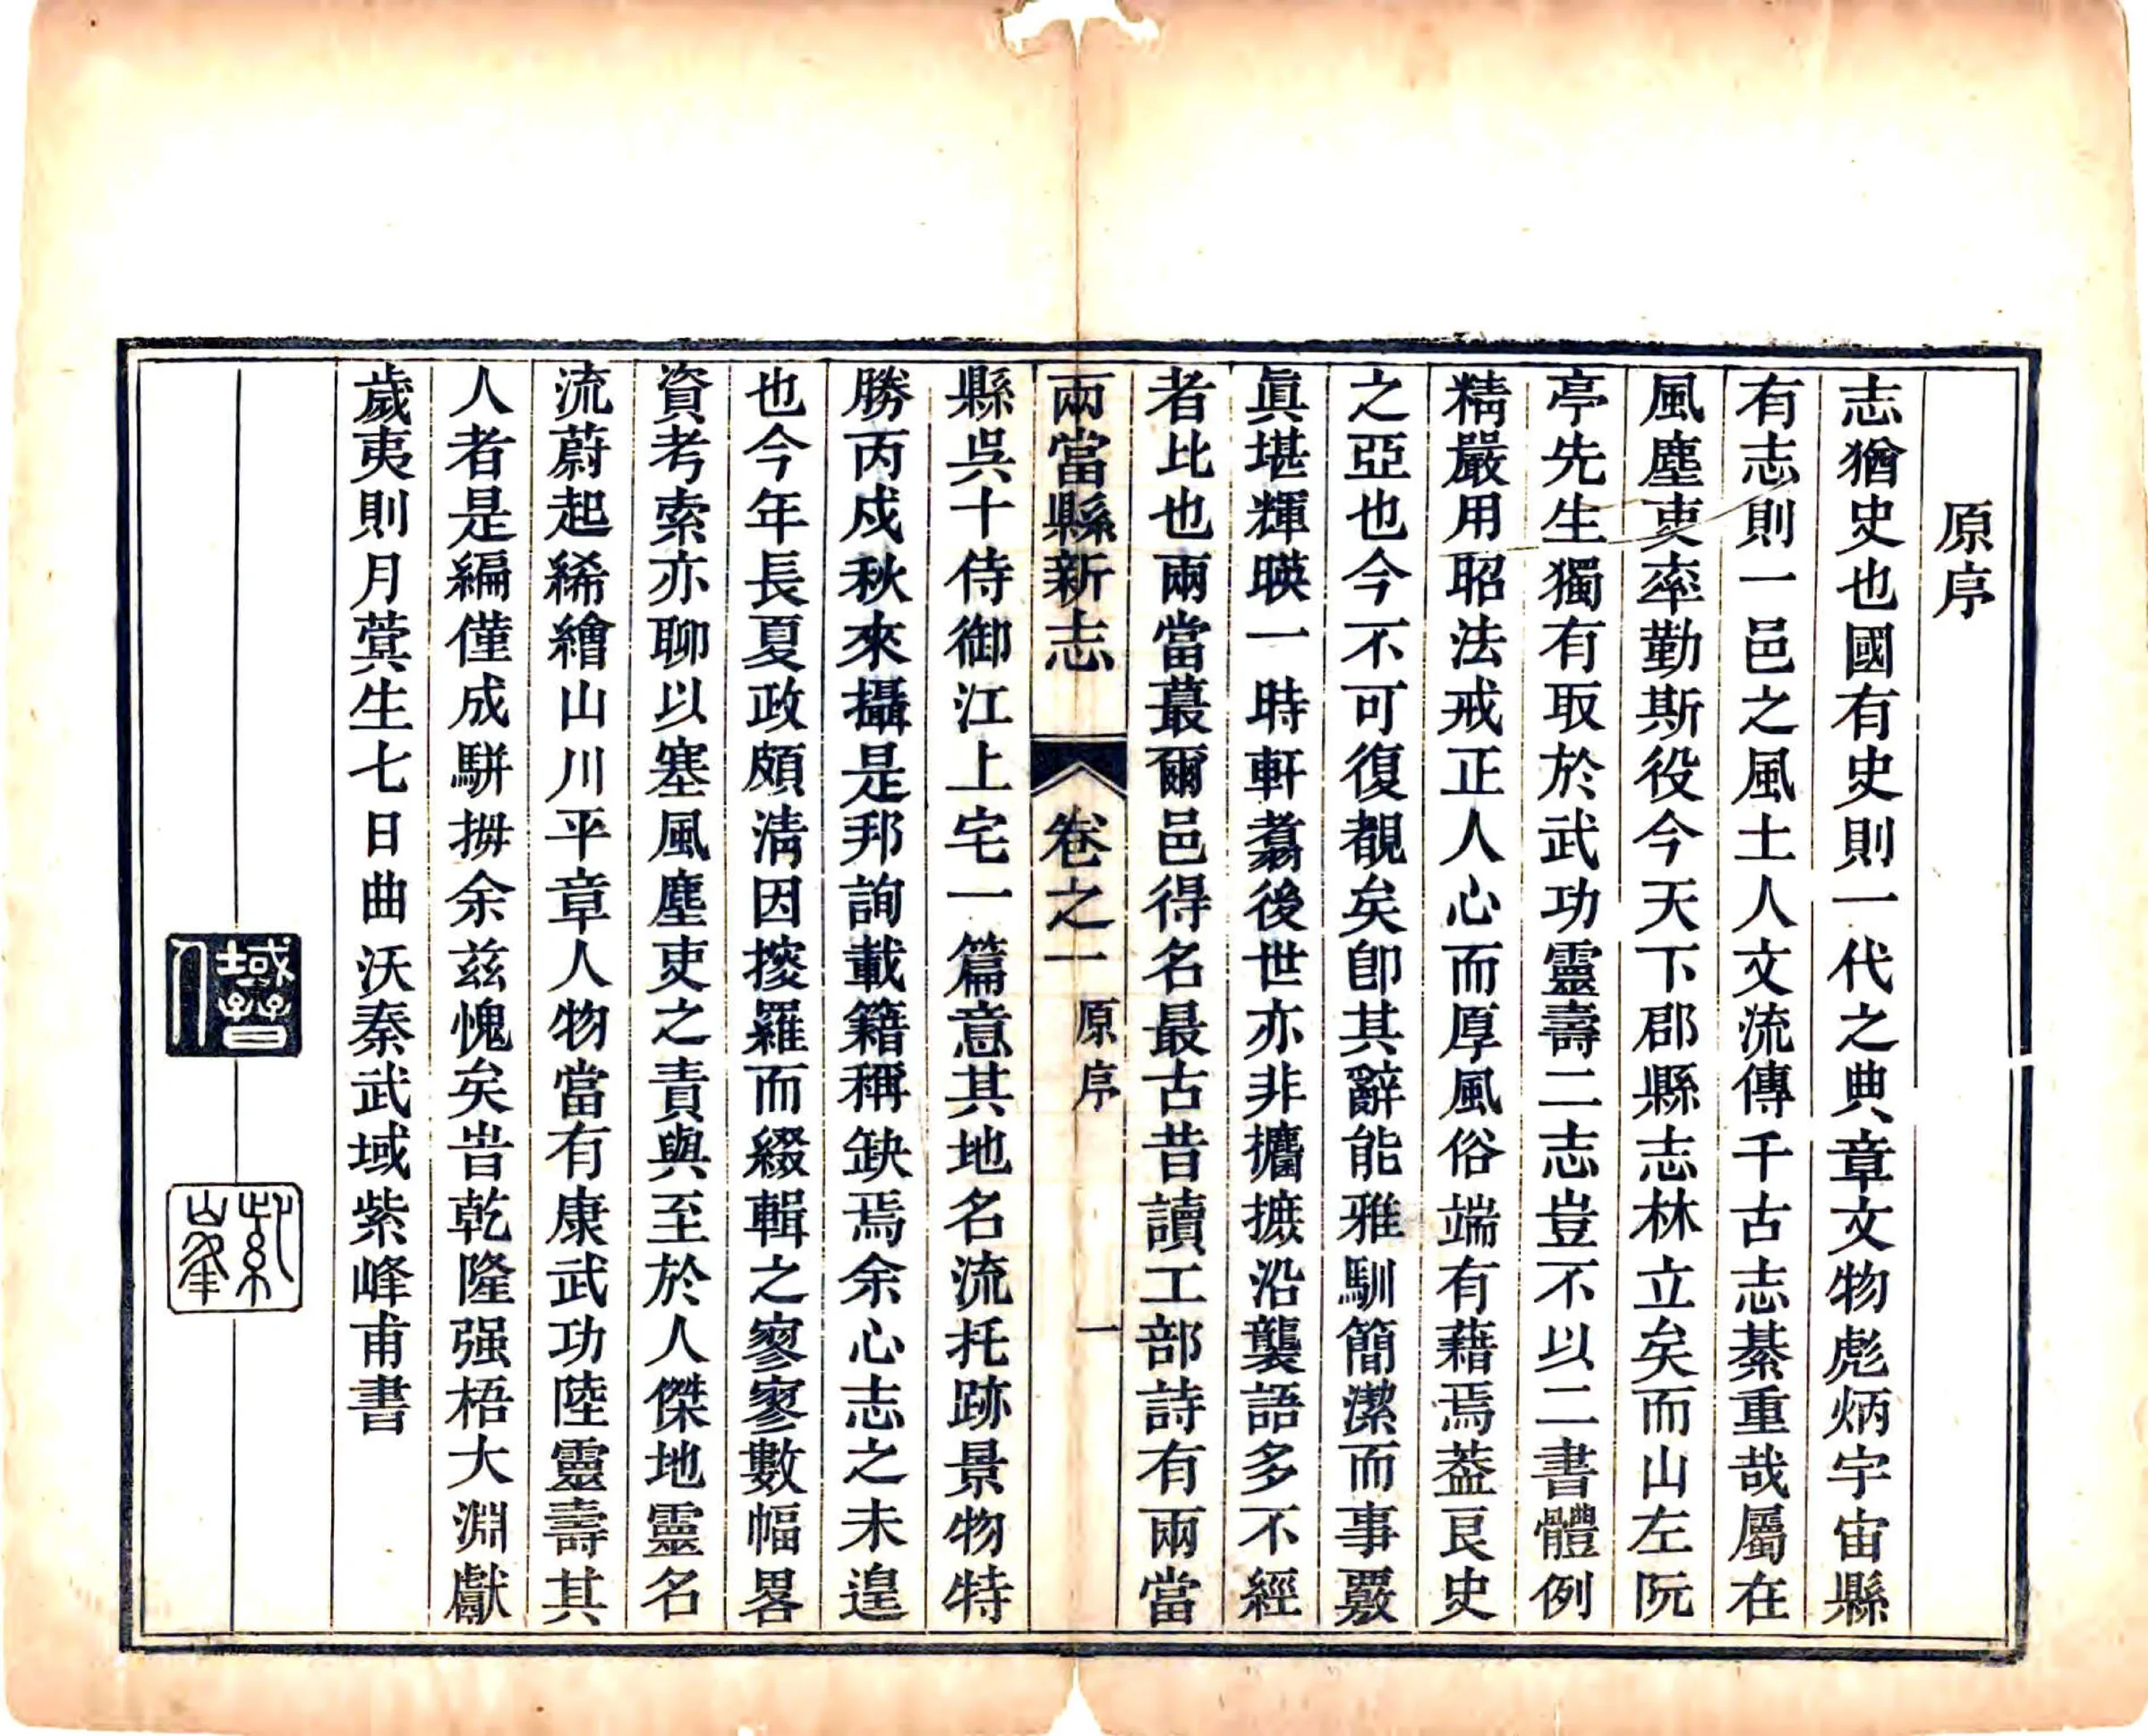 原序
志猶史也國有史則一代之典章文物彪炳宇宙縣
有志則一邑之風土人文流傳千古志綦重哉屬在
風塵吏率勤斯役今天下郡縣志林立矣而山左阮
亭先生獨有取於武功靈壽二志豈不以二書體例
精嚴用昭法戒正人心而厚風俗端有藉焉葢良史
之亞也今不可復覩矣卽其辭能雅馴簡潔而事覈
眞堪輝暎一時軒翥後世亦非攟摭沿襲語多不經
者比也兩當蕞爾邑得名最古昔讀工部詩有兩當
兩當縣新志
卷之一
原序
一
縣吳十侍御江上宅一篇意其地名流托跡景物特
勝丙戍秋來攝是邦詢載籍稱缺焉余心志之未遑
也今年長夏政頗淸因搜羅而綴輯之寥寥數幅畧
資考索亦聊以塞風塵吏之責與至於人傑地靈名
流蔚起絺繪山川平章人物當有康武功陸靈壽其
人者是編僅成駢拇余兹愧矣旹乾隆强梧大淵獻
歲夷則月蓂生七日曲沃秦武域紫峰甫書
域晉人
紫峯